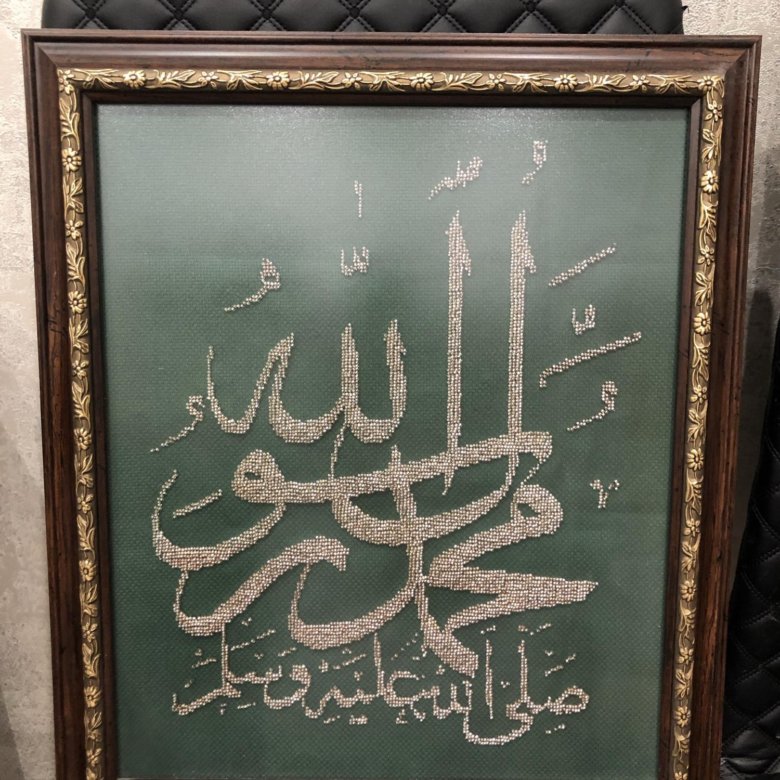 محمد رسول الله
صلى الله عليه وسلم